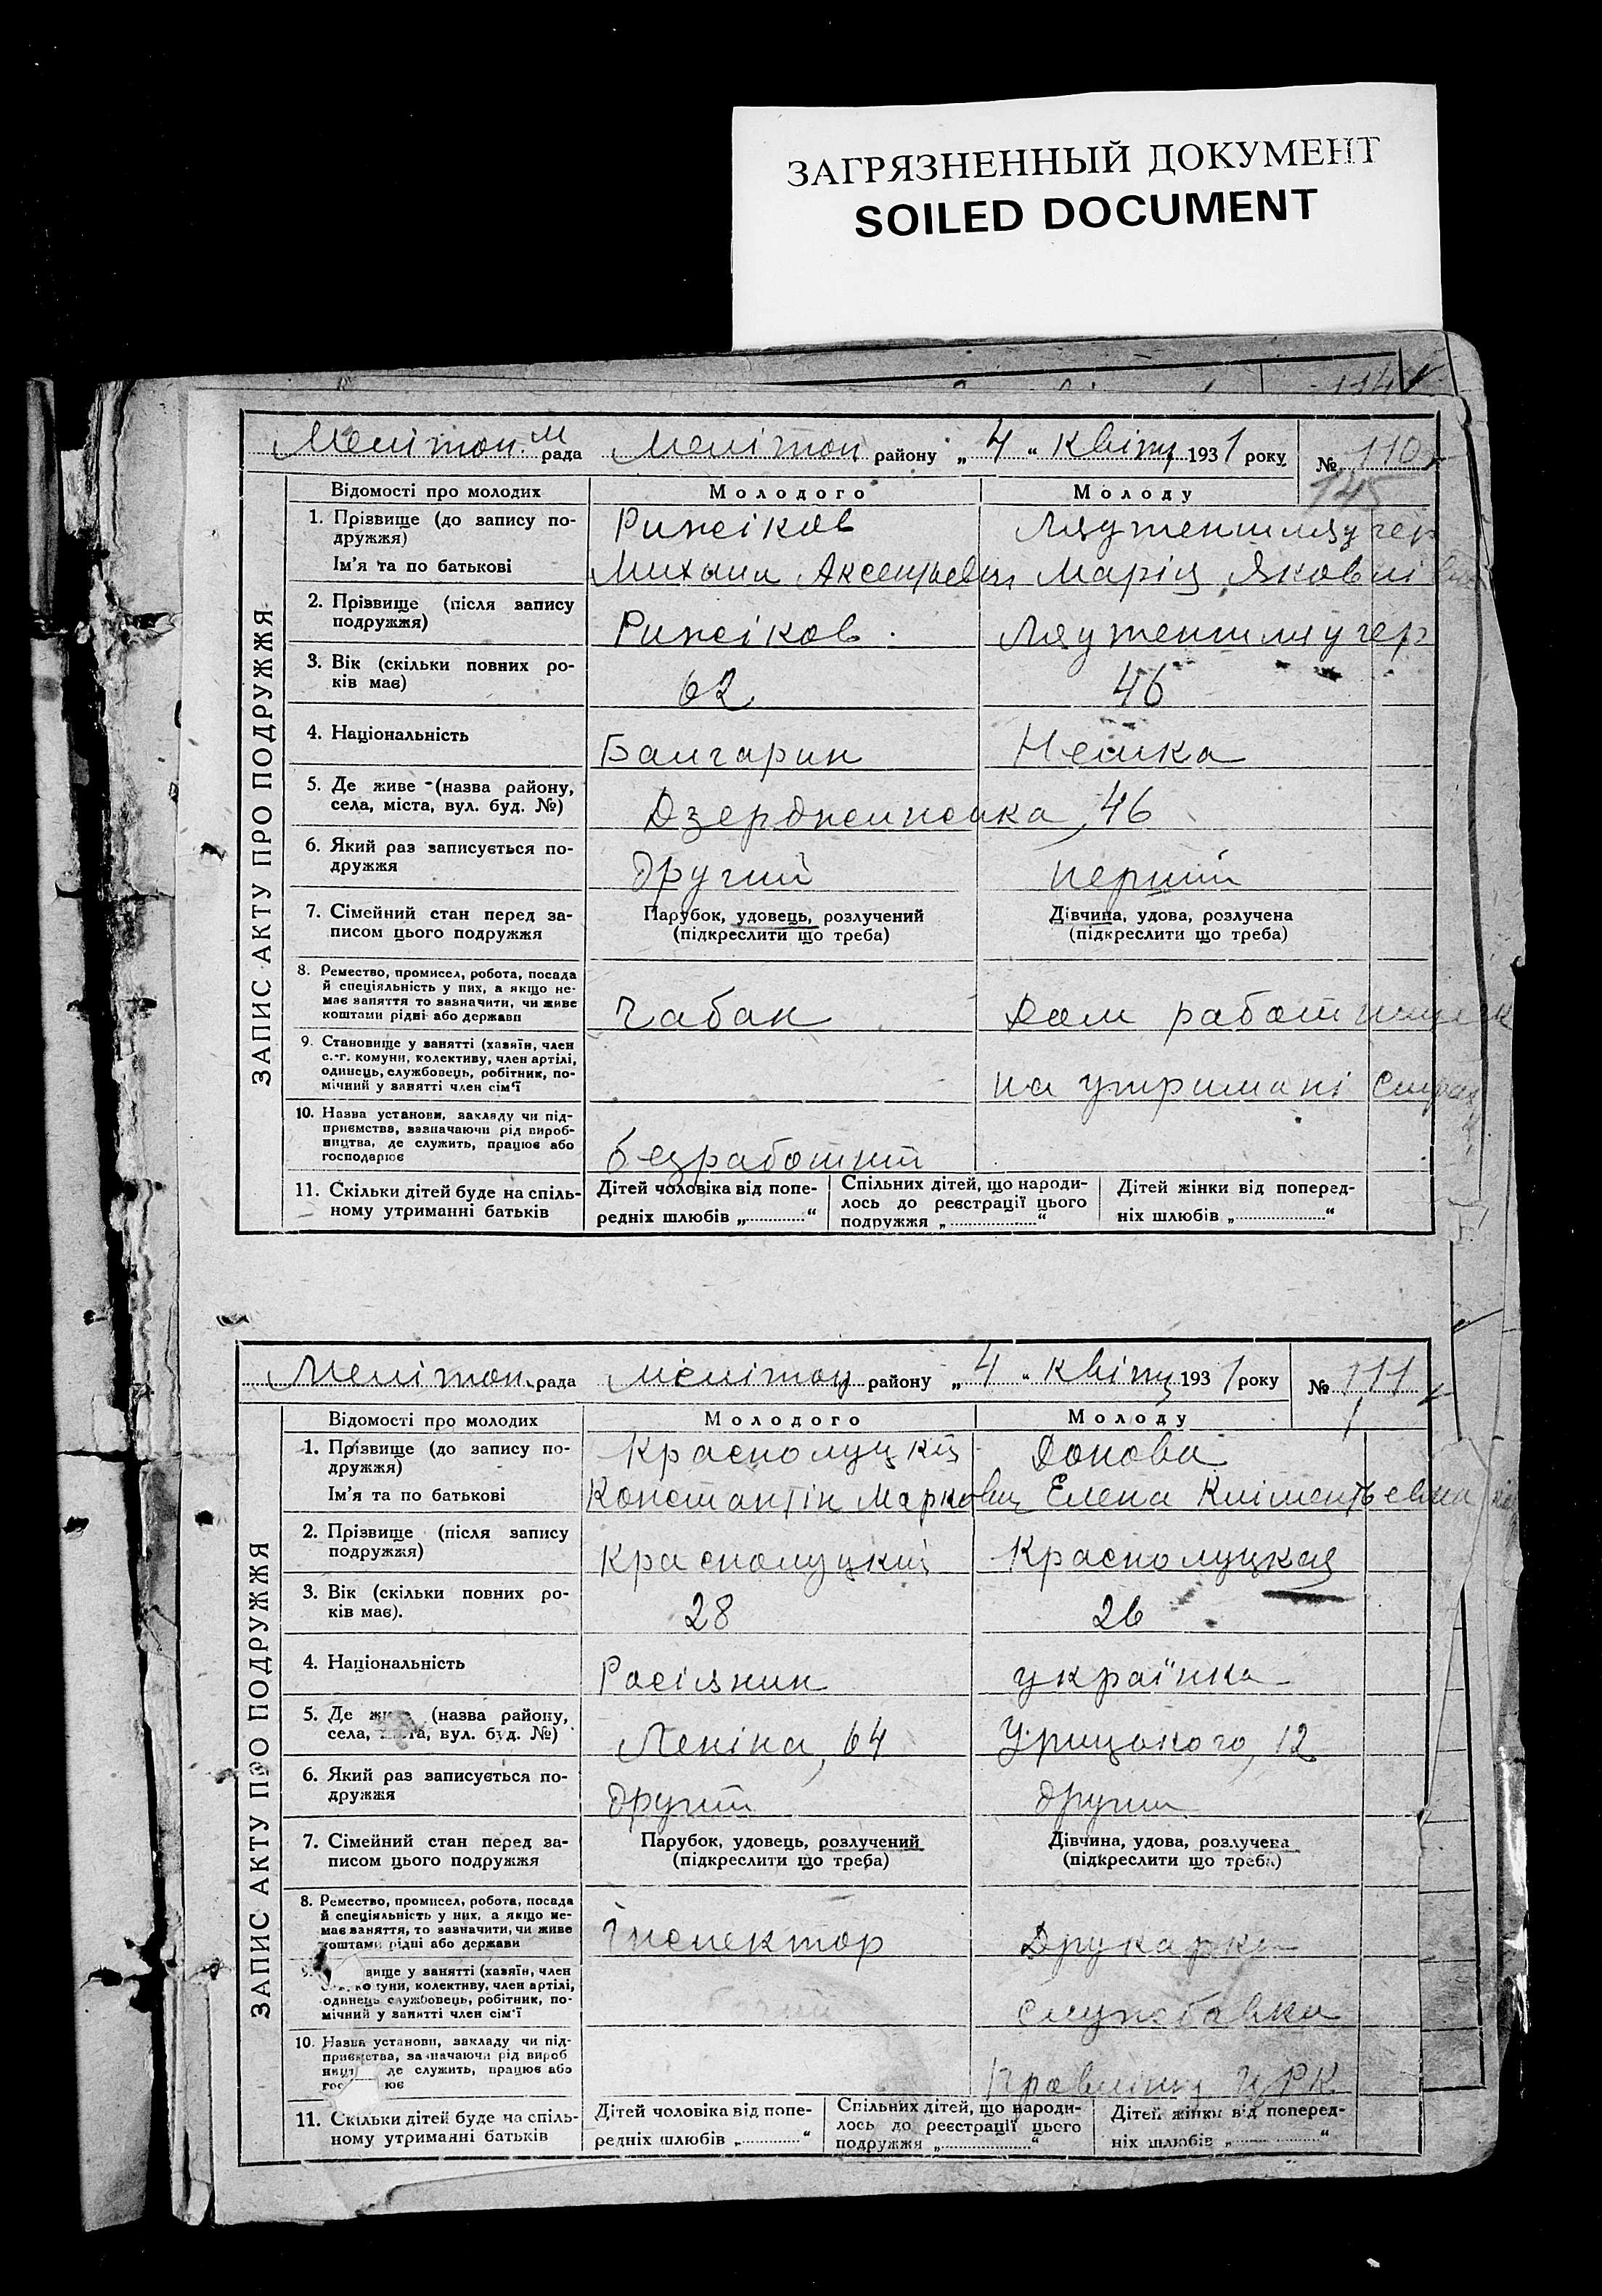 ЗАГРЯЗНЕННЫЙ ДОКУМЕНТ
SOILED DOCUMENT
114
ЗАПИС АКТУ ПРО ПОДРУЖЖЯ
Мелітоп. м рада Мелітоп району „ 4 “ Квітн 1931 року № 110
145
Відомості про молодих Молодого Молоду
1. Прізвище (до запису по-
дружжя) Рижіков
Ім'я та по батькові Михаил Аксентьевич Марія Яковлівна
2. Прізвище (після запису
подружжя) Рижіков
3. Вік (скільки повних ро-
ків має) 62 46
4. Національність Балгарин Немка
5. Де живе (назва району,
села, міста, вул. буд. №) Дзержинська, 46
6. Який раз записується по-
дружжя другий перший
7. Сімейний стан перед за-
писом цього подружжя
Парубок, удовець, розлучений
(підкреслити що треба)
Дівчина, удова, розлучена
(підкреслити що треба)
8. Ремество, промисел, робота, посада
й спеціяльність у них, а якщо не-
має заняття то зазначити, чи живе
коштами рідні або держави
Чабан Дом работниця
9. Становище у занятті (хазяїн, член
с.-г. комуни, колективу, член артілі,
одинець, службовець, робітник, по-
мічний у занятті член сім'ї
на утримані
10. Назва установи, закладу чи під-
приємства, зазначаючи рід вироб-
ництва, де служить, працює або
господарює
безработний
11. Скільки дітей буде на спіль-
ному утриманні батьків
Дітей чоловіка від попе-
редніх шлюбів „.............“
Спільних дітей, що народи-
лось до реєстрації цього
подружжя „....................“
Дітей жінки від поперед-
ніх шлюбів „....................“
ЗАПИС АКТУ ПРО ПОДРУЖЖЯ
Мелітоп. рада Мелітоп району „ 4 “ Квітн 1931 року № 111
Відомості про молодих Молодого Молоду
1. Прізвище (до запису по-
дружжя) Краснолуцкій Донова
Ім'я та по батькові Константін Маркович Елена Кліментьевна
2. Прізвище (після запису
подружжя) Краснолуцкий Краснолуцкая
3. Вік (скільки повних ро-
ків має). 28 26
4. Національність Росіянин українка
5. Де живе (назва району,
села, міста, вул. буд. №) Леніна, 64 Урицького, 12
6. Який раз записується по-
дружжя другий другий
7. Сімейний стан перед за-
писом цього подружжя
Парубок, удовець, розлучений
(підкреслити що треба)
Дівчина, удова, розлучена
(підкреслити що треба)
8. Ремество, промисел, робота, посада
й спеціяльність у них, а якщо не-
має заняття, то зазначити, чи живе
коштами рідні або держави
Інспектор Друкарка
вище у занятті (хазяїн, член
комуни, колективу, член артілі,
одинець службовець, робітник, по-
мічний у занятті член сім'ї
службовка
10. Назва установи, закладу чи під-
приємства, зазначаючи рід вироб
ництва де служить, працює або
господарює
Правління ЦРК
11. Скільки дітей буде на спіль-
ному утриманні батьків
Дітей чоловіка від попе-
редніх шлюбів „.............“
Спільних дітей, що народи-
лось до реєстрації цього
подружжя „....................“
Дітей жінки від поперед-
ніх шлюбів „....................“